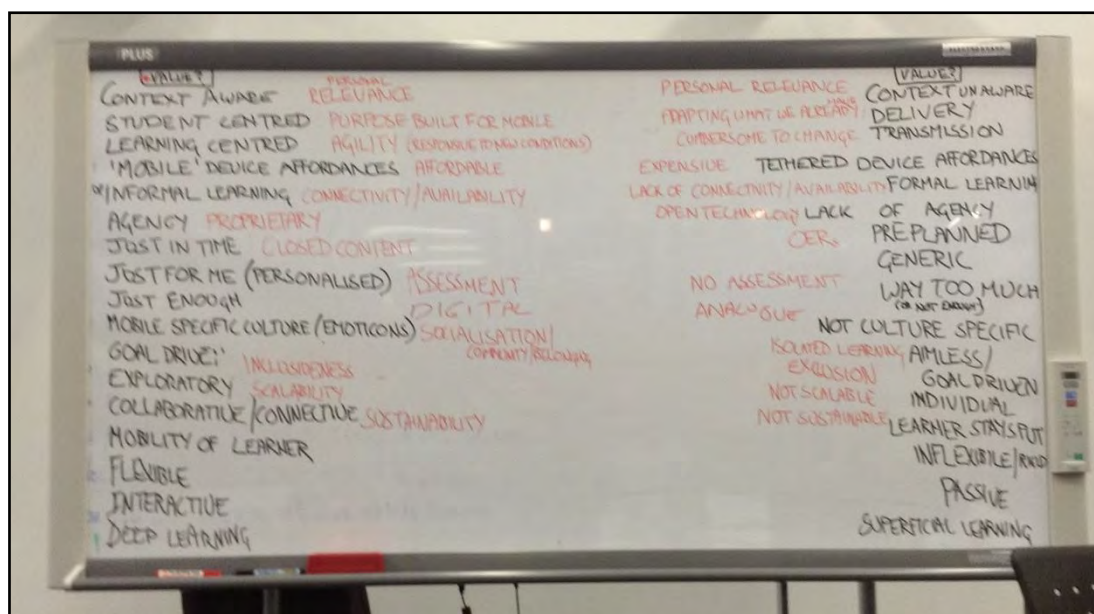 PLUS
VALUE?
VALUE?
PERSONAL
CONTEXT AWARE RELEVANCE
STUDENT CENTRED PURPOSE BUILT FOR MOBILE
LEARNING CENTRED AGILITY (RESPONSIVE TO NEW CONDITIONS)
'MOBILE' DEVICE AFFORDANCES AFFORDABLE
INFORMAL LEARNING CONNECTIVITY/AVAILABILITY
AGENCY PROPRIETARY
JUST IN TIME CLOSED CONTENT
JUST FOR ME (PERSONALISED) ASSESSMENT
JUST ENOUGH DIGITAL
MOBILE SPECIFIC CULTURE (EMOTICONS) SOCIALISATION/
COMMUNITY/BELONGING
GOAL INCLUSIVENESS
EXPLORATORY SCALABILITY
COLLABORATIVE/CONNECTIVE SUSTAINABILITY
MOBILITY OF LEARNER
FLEXIBLE
INTERACTIVE
DEEP LEARNING
PERSONAL RELEVANCE CONTEXT UNAWARE
ADAPTING WHAT WE ALREADY HAVE DELIVERY
CUMBERSOME TO CHANGE TRANSMISSION
EXPENSIVE TETHERED DEVICE AFFORDANCES
LACK OF CONNECTIVITY/AVAILABILITY FORMAL
OPEN TECHNOLOGY LACK OF AGENCY
OER PREPLANNED
GENERIC
NO ASSESSMENT WAY TOO MUCH
ANALOGUE (OR NOT ENOUGH)
NOT CULTURE SPECIFIC
ISOLATED LEARNING AIMLESS/
EXCLUSION GOAL DRIVEN
NOT SCALABLE INDIVIDUAL
NOT SUSTAINABLE LEARNER STAYS PUT
PASSIVE
SUPERFICIAL LEARNING